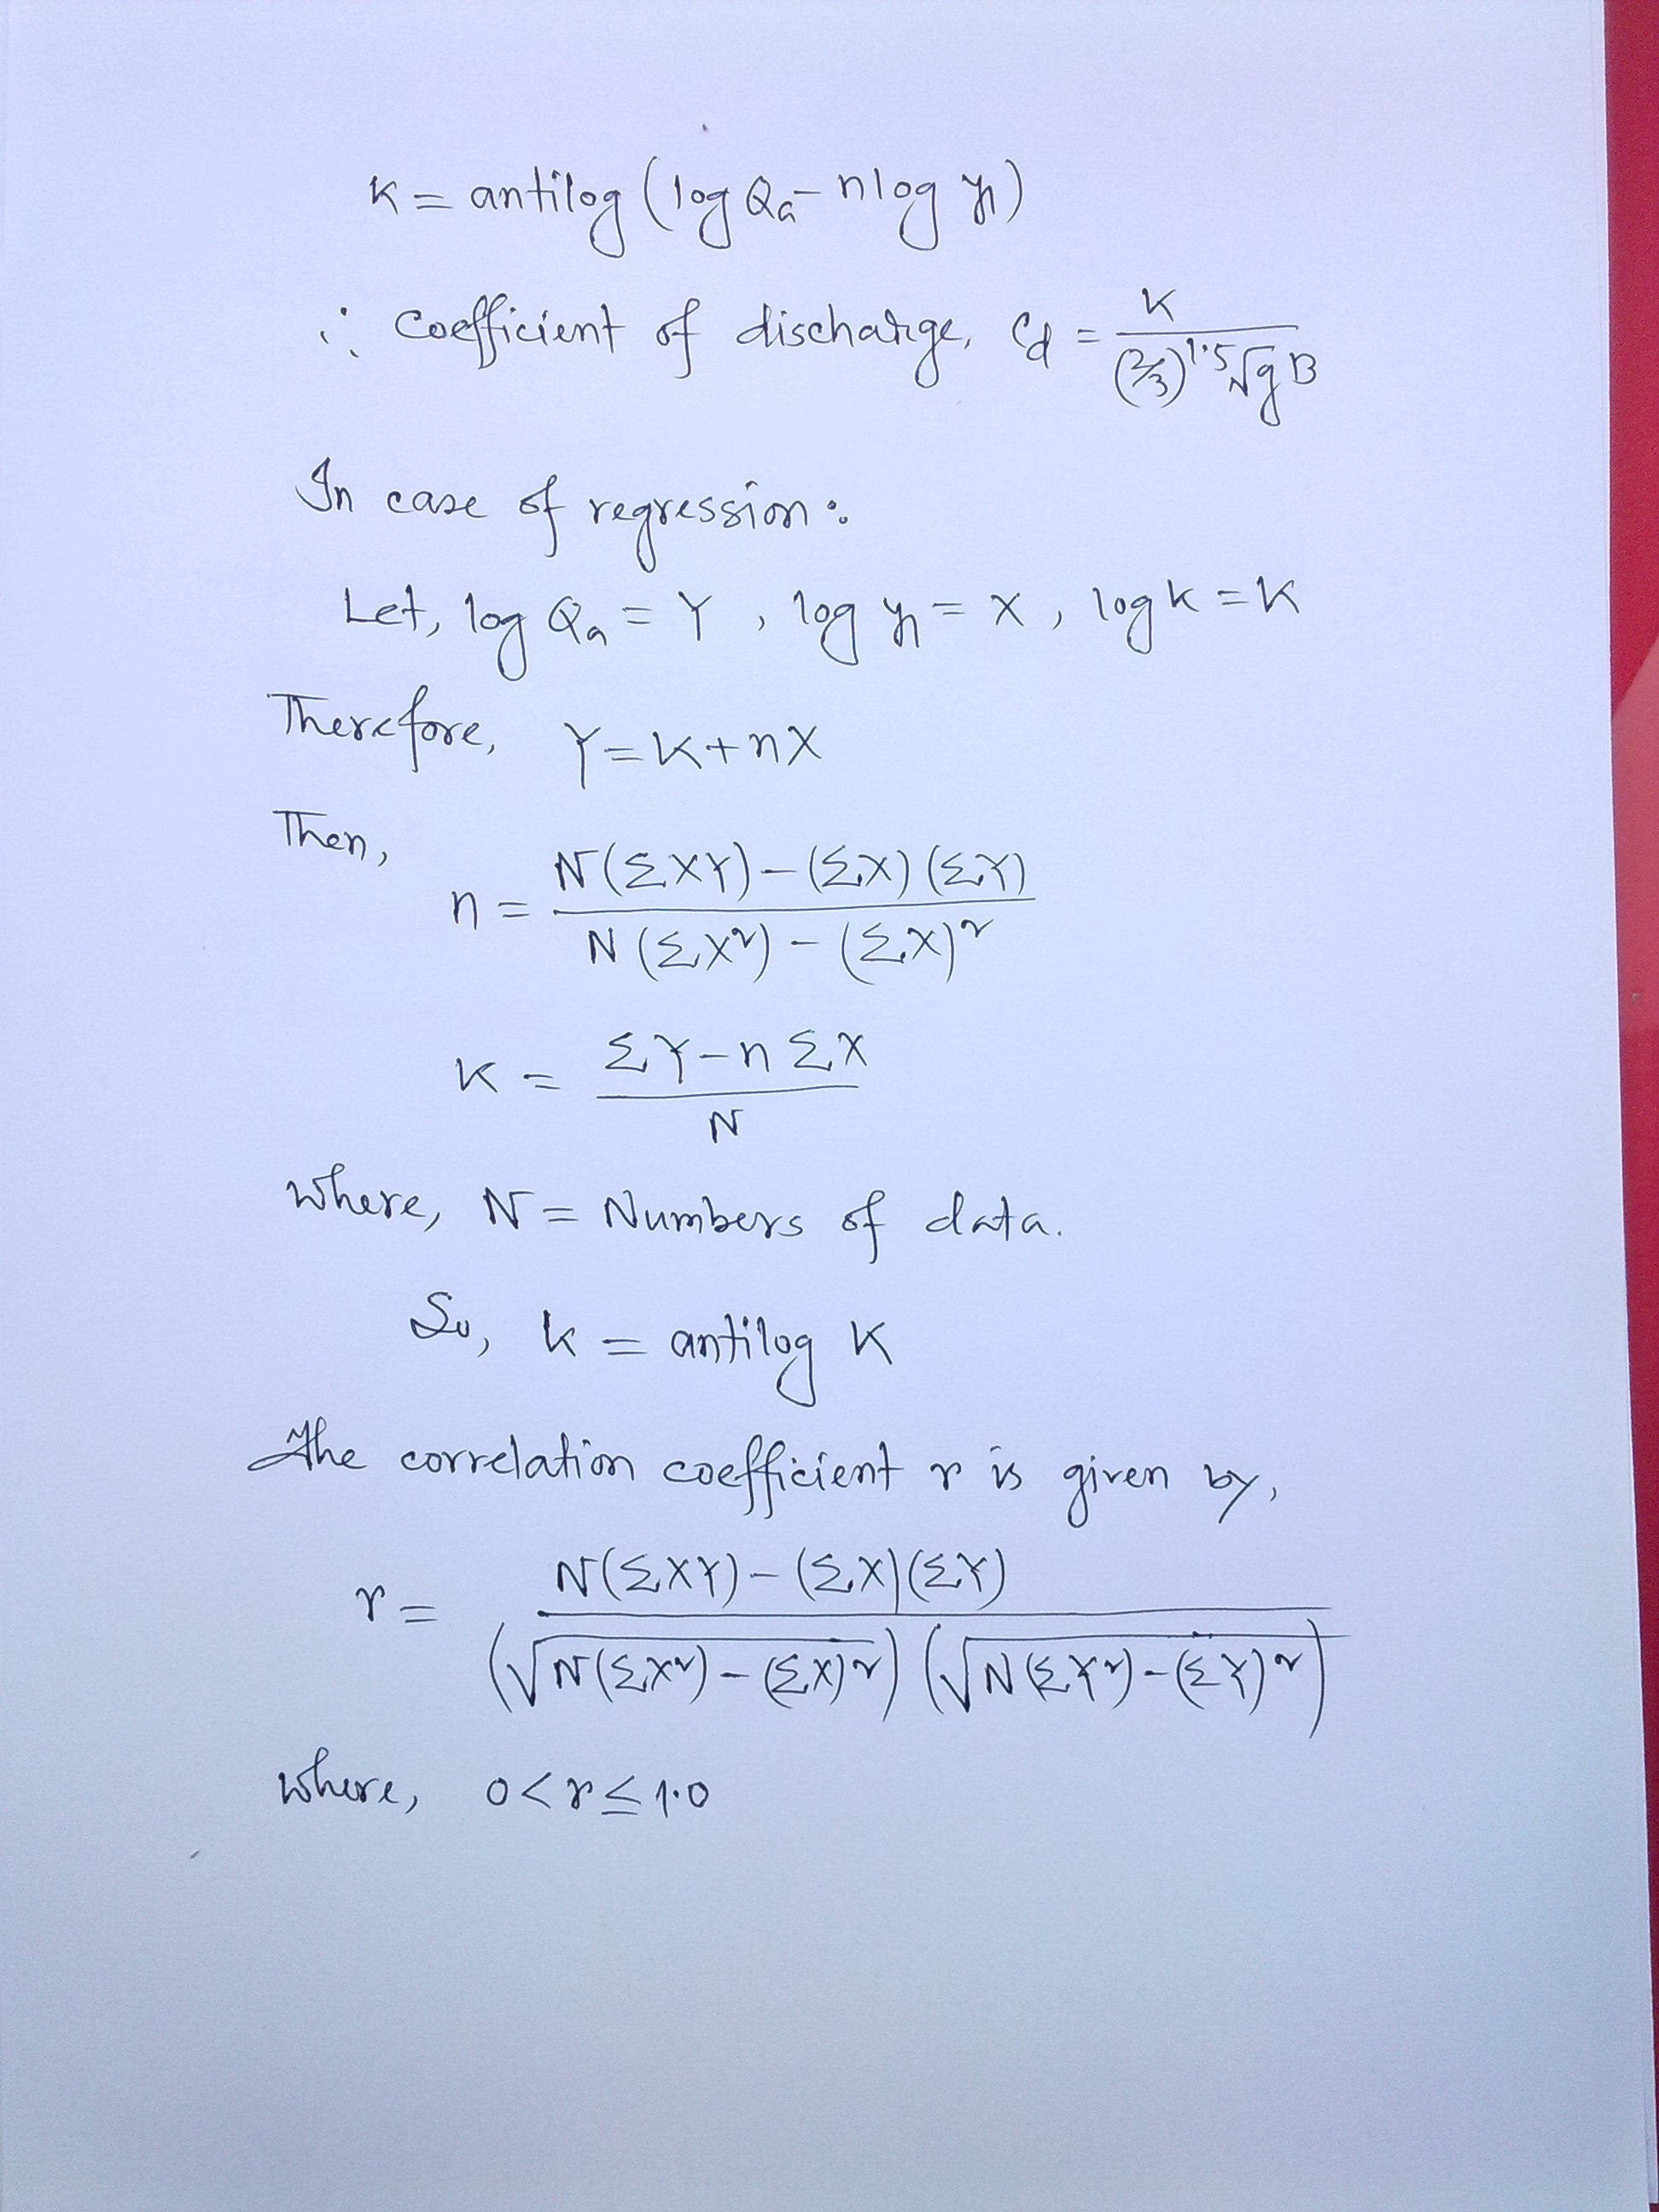 K = antilog (log Qa - n log y1)
∴ Coefficient of discharge, Cd = K / ((2/3)^1.5 √g B)
In case of regression:
Let, log Qa = Y , log y1 = X , log k = K
Therefore, Y = K + nX
Then,
n = (N(ΣXY) - (ΣX)(ΣY)) / (N(ΣX²) - (ΣX)²)
K = (ΣY - nΣX) / N
Where, N = Numbers of data.
So, k = antilog K
The correlation coefficient r is given by,
r = (N(ΣXY) - (ΣX)(ΣY)) / ((√(N(ΣX²) - (ΣX)²)) (√(N(ΣY²) - (ΣY)²)))
Where, 0 < r ≤ 1.0